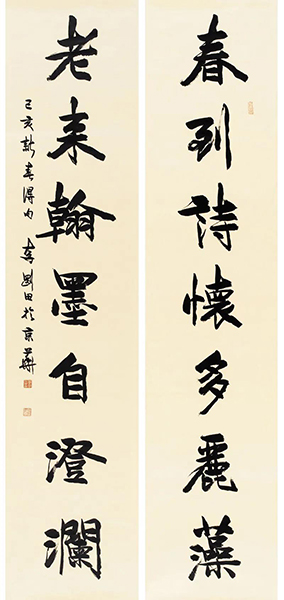 春到詩懷多麗藻
老来翰墨自澄瀾
己亥新春得句
劉田於京華